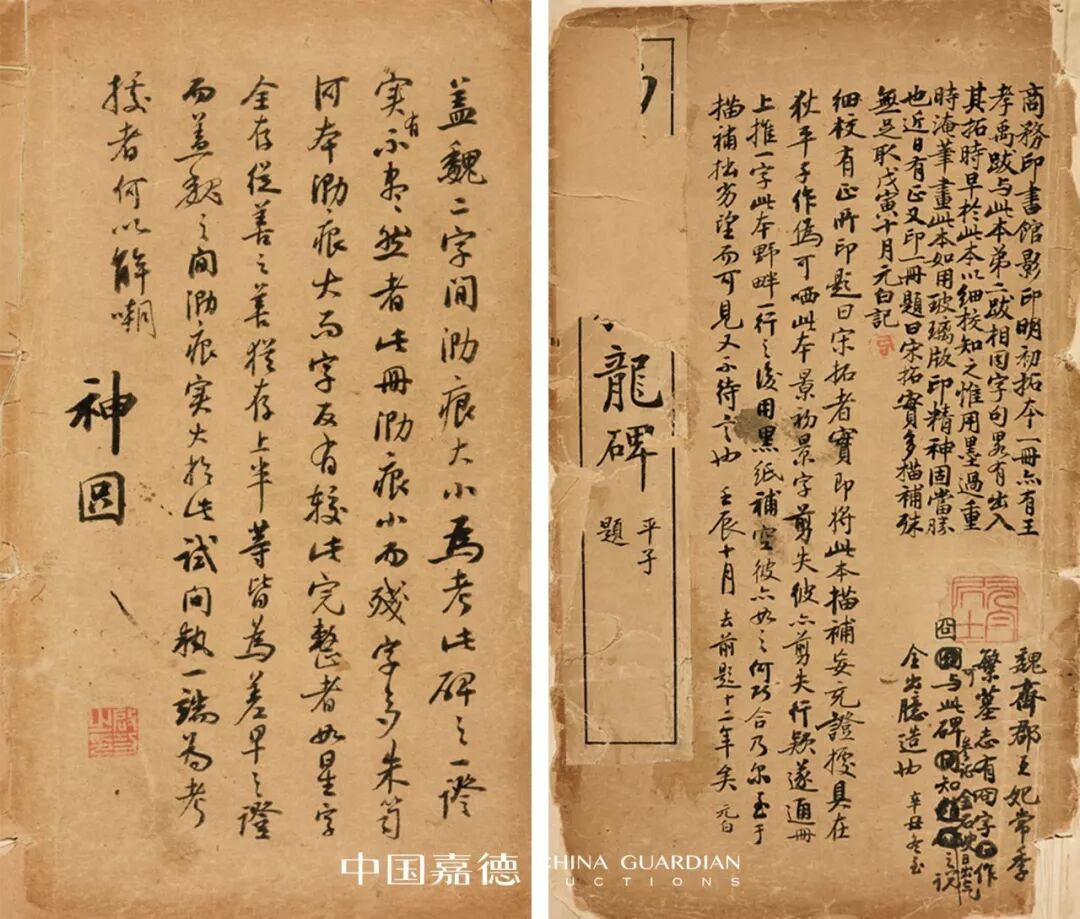 盖魏二字间泐痕大小為考此碑之一證
実有不尽然者此冊泐痕小而殘字多朱笥
河本泐痕大而字反有较此完整者如星字
全存從善之善猶存上半等皆為差早之證
而盖魏之间泐痕実大於此試問執一端為考
据者何以解嘲
神囧
商務印書館影印明初拓本一冊亦有王
孝禹跋与此本弟二跋相同字句畧有出入
其拓時早於此本以细校知之惟用墨過重
時淹筆畫此本如用玻璃版印精神固當勝
也近日有正又印一冊題曰宋拓實多描補殊
無足取戊寅十月元白記
细校有正所印题曰宋拓者實即将此本描補妄充證據具在
狄平子作偽可哂此本景初景字剪失彼亦剪失行款遂通冊
上推一字此本野畔一行之後用黑纸補空彼亦如之何巧合乃尔至于
描補拙劣望而可見又不待言也 壬辰十月 去前题十二年矣 元白
龍碑
平子
題
元白居士
魏齊郡王妃常季
繁墓志有囧字可作
囧與此碑知之说
全出臆造也 辛丑冬至
中国嘉德 CHINA GUARDIAN
AUCTIONS